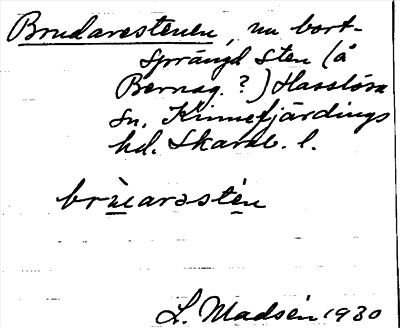 Brudarestenen, nu bort-
sprängd sten (å
Bernsg. ?) Hasslösa
sn. Kinnefjärdings
hd. Skarab. l.
L. Madsén 1930